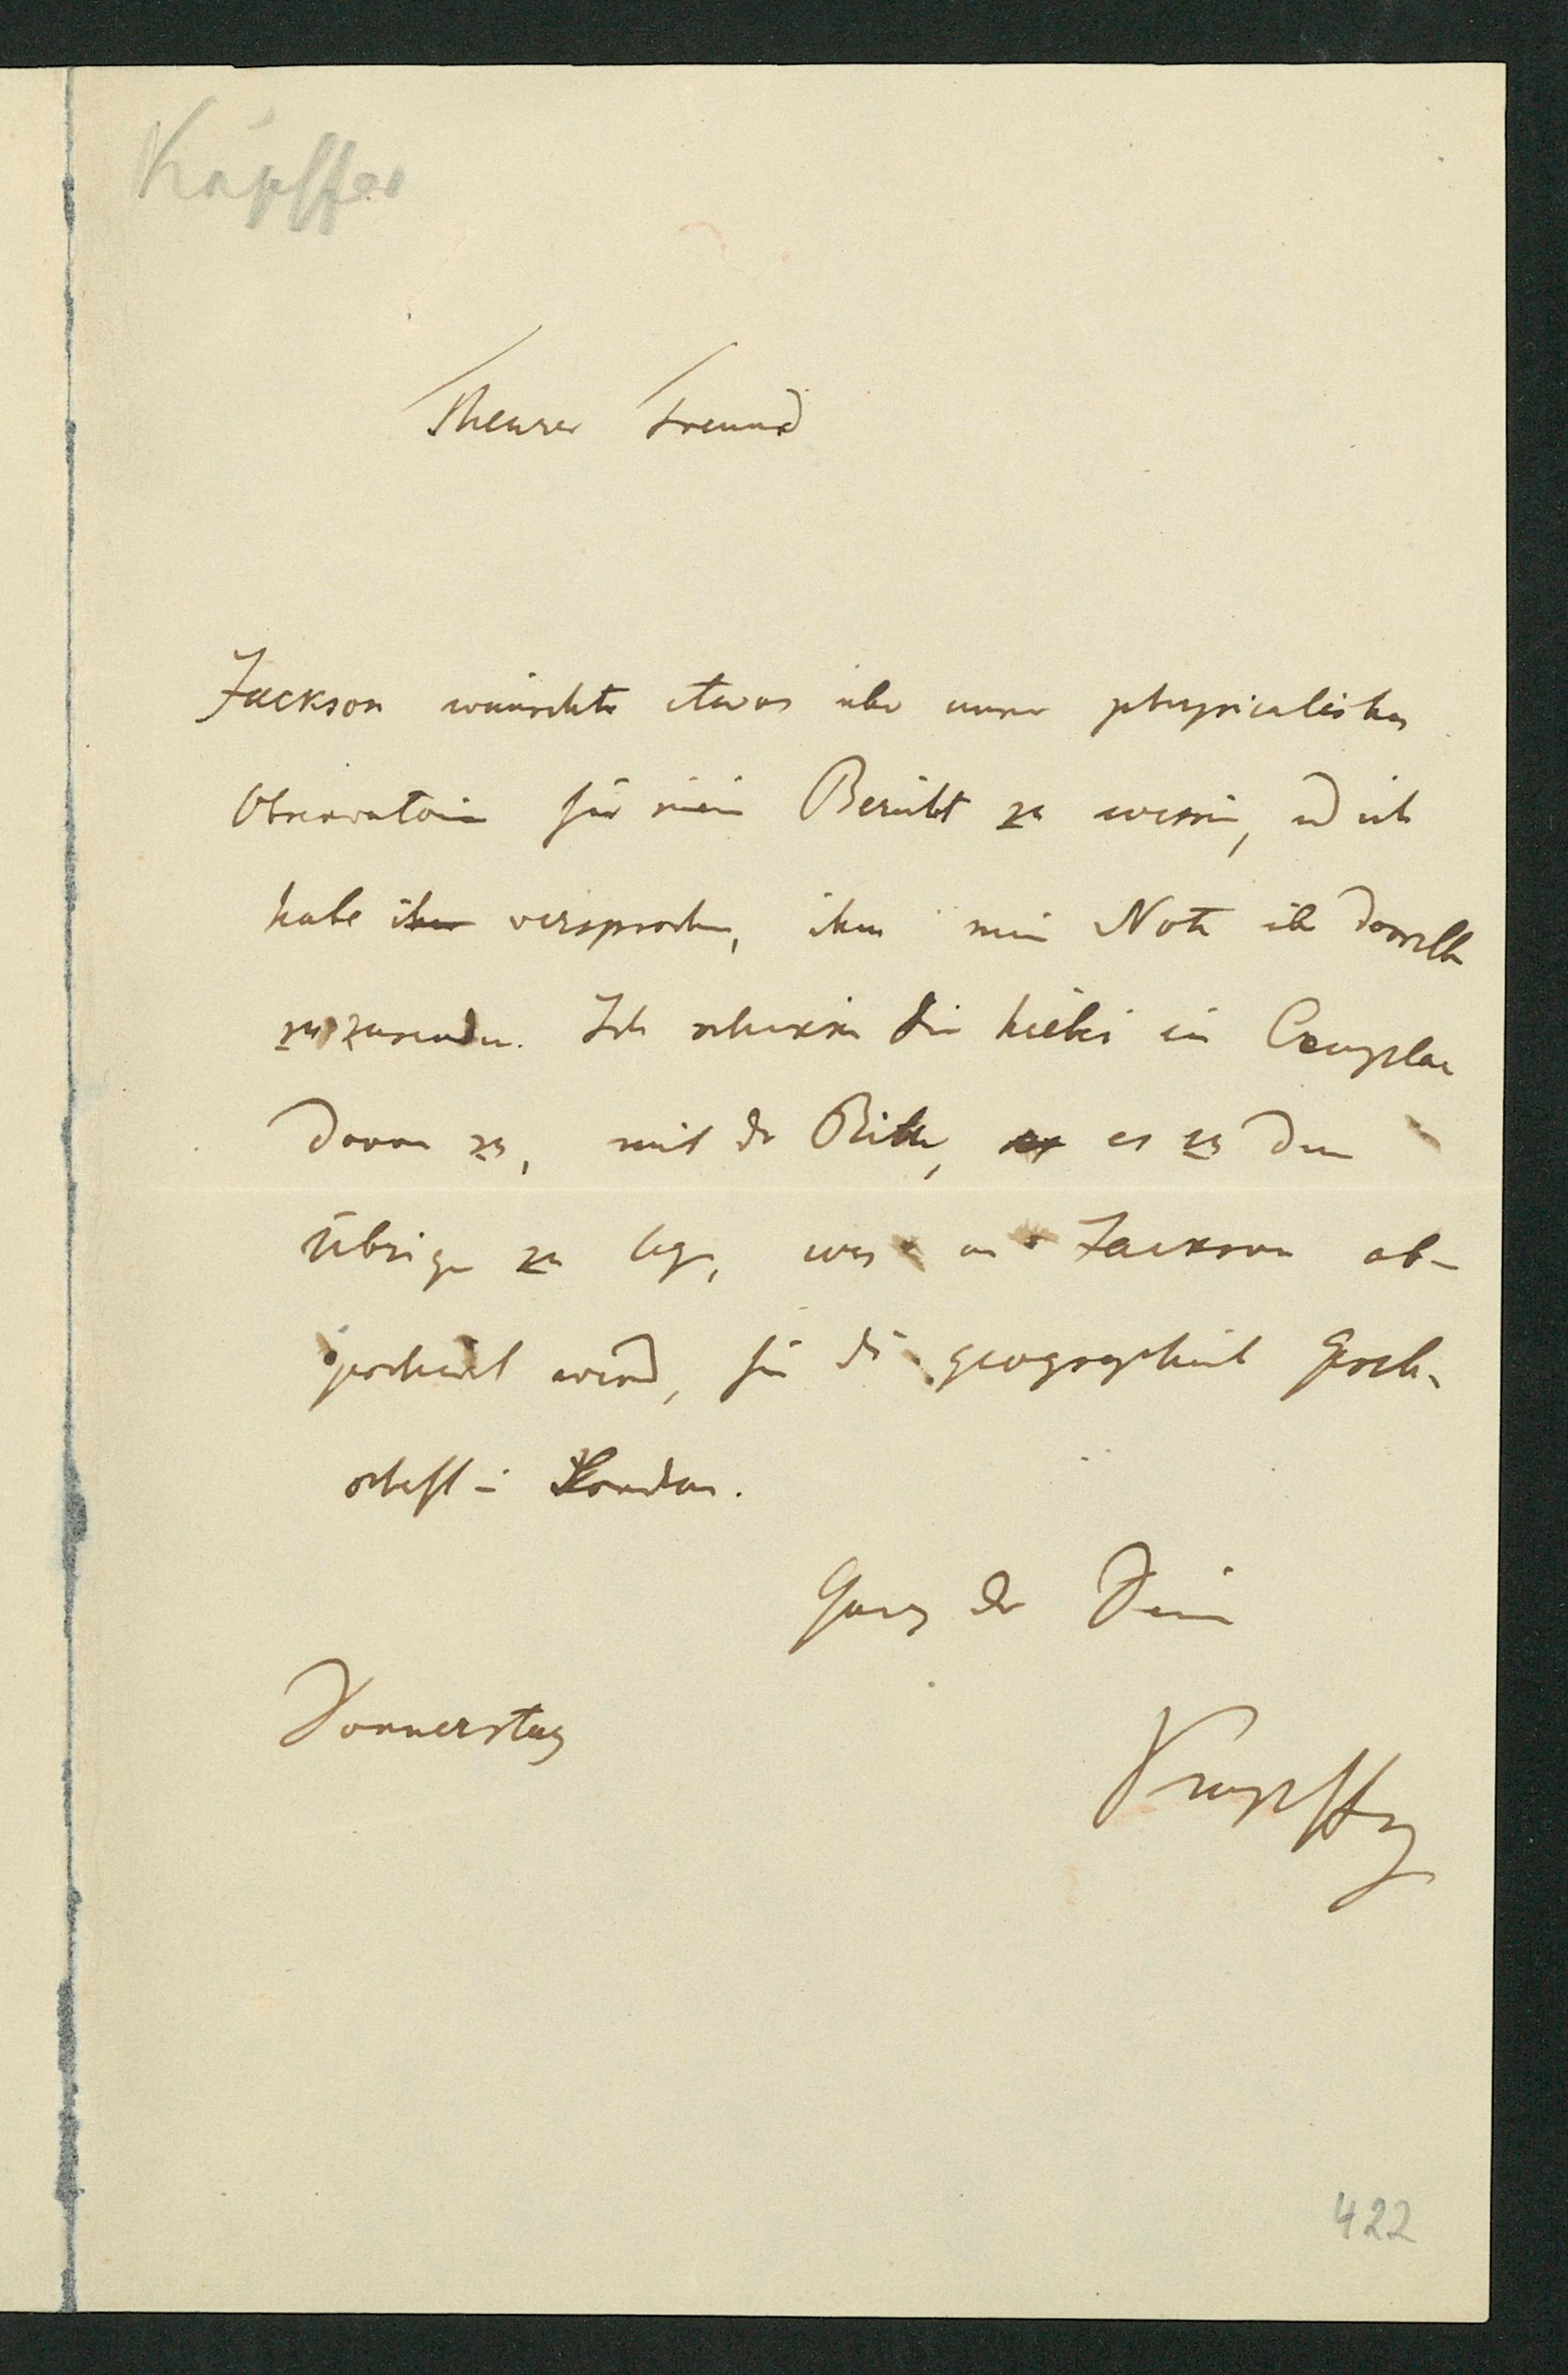 Kupffer
Theurer Freund
Jackson wünschte etwas über unser physicalisches
Observatorium für seinen Bericht zu wissen, und ich
habe ihm versprochen, ihm meine Note über dasselbe
zuzusenden. Ich schicke Dir hiebei ein Exemplar
davon zu, mit der Bitte, es zu dem
Übrigen zu legen, was an Jackson ab-
geschickt wird, für die geographische Gesell-
schaft in London.
Ganz der Deine
Donnerstag
Kupffer
422